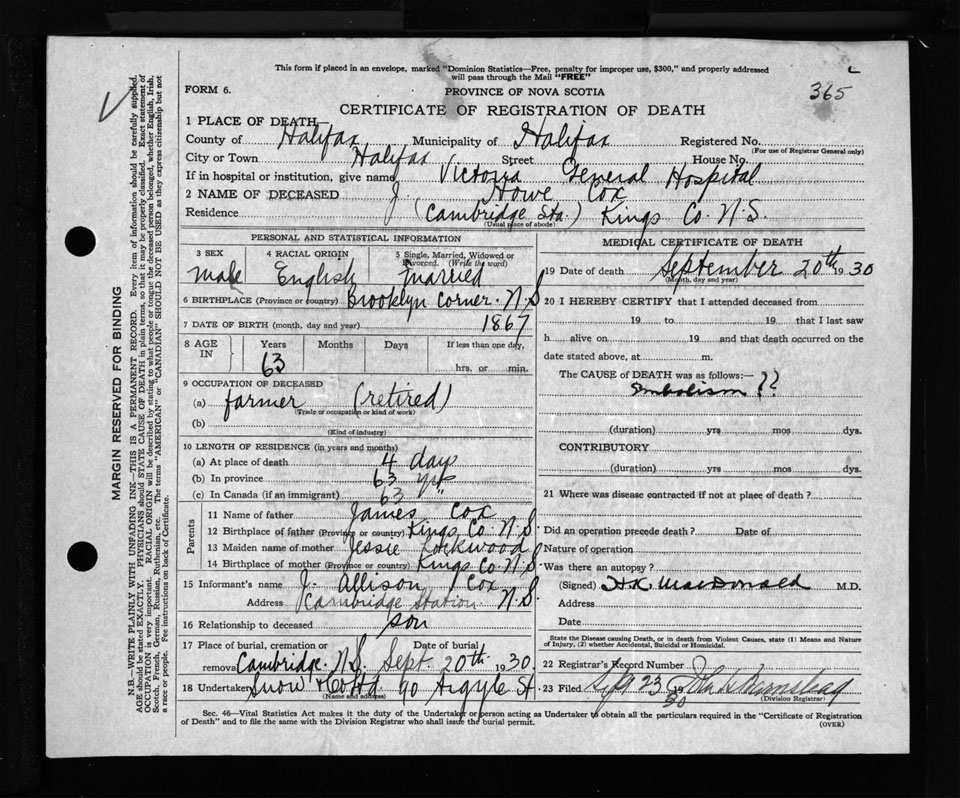 This form if placed in an envelope, marked "Dominion Statistics—Free, penalty for improper use, $300," and properly addressed
will pass through the Mail "FREE"
FORM 6.
PROVINCE OF NOVA SCOTIA
365
CERTIFICATE OF REGISTRATION OF DEATH
1 PLACE OF DEATH
County of Halifax Municipality of Halifax Registered No.
(For use of Registrar General only)
City or Town Halifax Street House No.
If in hospital or institution, give name Victoria General Hospital
2 NAME OF DECEASED J Howe Cox
Residence (Cambridge Sta.) Kings Co. N.S.
(Usual place of abode)
PERSONAL AND STATISTICAL INFORMATION
3 SEX 4 RACIAL ORIGIN 5 Single, Married, Widowed or
Divorced. (Write the word)
Male English Married
6 BIRTHPLACE (Province or country) Brooklyn Corner. N.S
7 DATE OF BIRTH (month, day and year) 1867
8 AGE IN Years Months Days If less than one day,
63 hrs. or min.
9 OCCUPATION OF DECEASED
(a) farmer (retired)
(Trade or occupation or kind of work)
(b)
(Kind of industry)
10 LENGTH OF RESIDENCE (in years and months)
(a) At place of death 4 days
(b) In province 63 yrs
(c) In Canada (if an immigrant) 63 "
Parents
11 Name of father James Cox
12 Birthplace of father (Province or country) Kings Co N.S.
13 Maiden name of mother Jessie Rockwood
14 Birthplace of mother (Province or country) Kings Co N.S.
15 Informant's name J. Allison Cox
Address Cambridge Station N.S.
16 Relationship to deceased son
17 Place of burial, cremation or Date of burial
removal Cambridge. N.S. Sept 20th 1930.
18 Undertaker Snow & Co Ltd 90 Argyle St
(Name and address)
MEDICAL CERTIFICATE OF DEATH
19 Date of death September 20th 1930
(Month, day and year)
20 I HEREBY CERTIFY that I attended deceased from
19 to 19 that I last saw
h alive on 19 and that death occurred on the
date stated above, at m.
The CAUSE of DEATH was as follows:—
Embolism ??
(duration) yrs mos dys.
CONTRIBUTORY
(duration) yrs mos dys.
21 Where was disease contracted if not at place of death ?
Did an operation precede death ? Date of
Nature of operation
Was there an autopsy ?
(Signed) H.K. MacDonald M.D.
Address
Date
State the Disease causing Death, or in death from Violent Causes, state (1) Means and Nature
of Injury, (2) whether Accidental, Suicidal or Homicidal.
22 Registrar's Record Number
23 Filed Sept 23 1930
(Division Registrar)
Sec. 46—Vital Statistics Act makes it the duty of the Undertaker or person acting as Undertaker to obtain all the particulars required in the "Certificate of Registration
of Death" and to file the same with the Division Registrar who shall issue the burial permit.
(OVER)
MARGIN RESERVED FOR BINDING
N.B.—WRITE PLAINLY WITH UNFADING INK—THIS IS A PERMANENT RECORD. Every item of information should be carefully supplied.
AGE should be stated EXACTLY. PHYSICIANS should STATE CAUSE OF DEATH in plain terms, so that it may be properly classified. Exact statement of
OCCUPATION is very important. RACIAL ORIGIN will be described by stating to what people or tongue the deceased person belonged, whether English, Irish,
Scotch, French, German, Russian, Ruthenian, etc. The terms "AMERICAN" or "CANADIAN" SHOULD NOT BE USED as they express citizenship but not
a race or people. Fee instructions on back of Certificate.